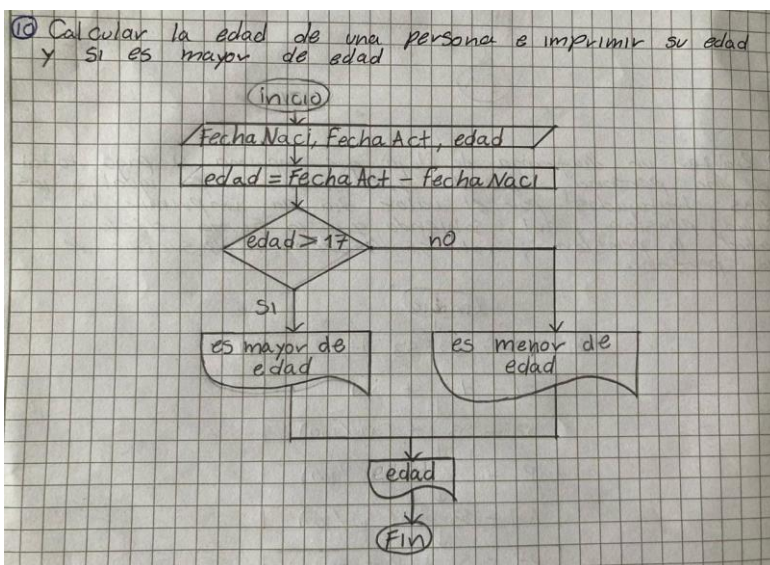 10 Calcular la edad de una persona e imprimir su edad
y si es mayor de edad
inicio
FechaNaci, FechaAct, edad
edad = FechaAct - fechaNaci
edad > 17
no
SI
es mayor de
edad
es menor de
edad
edad
Fin